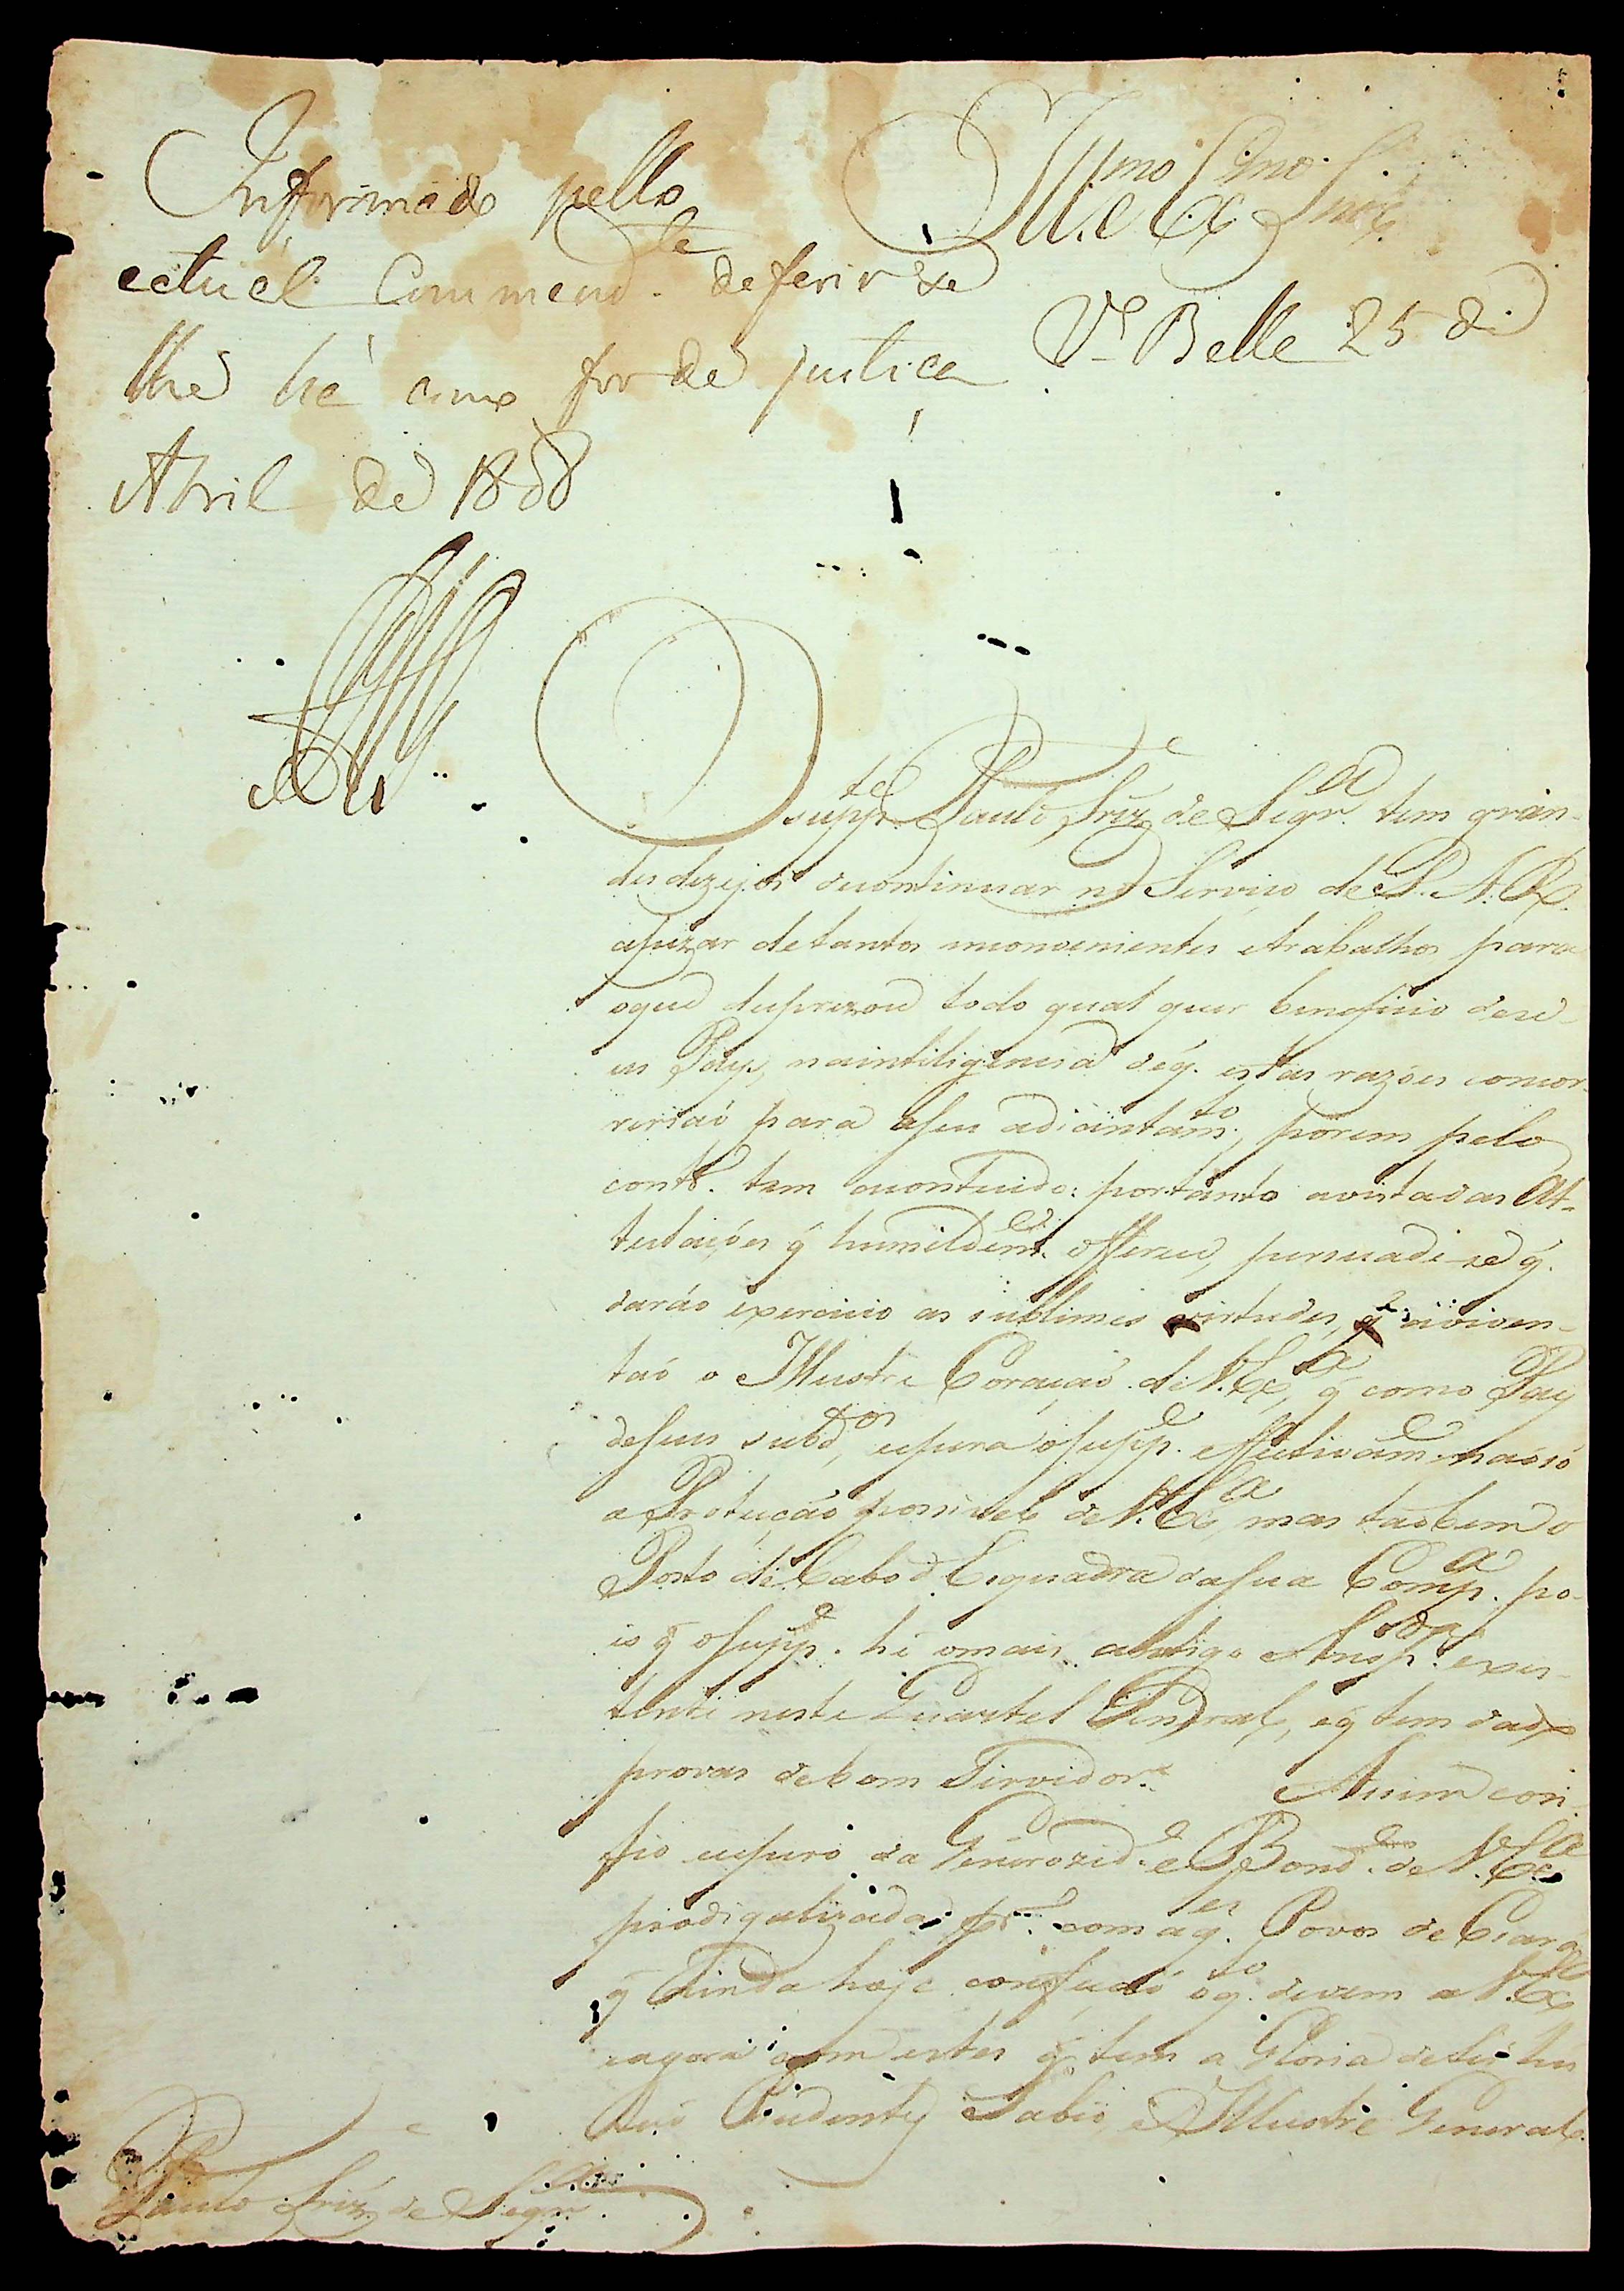 Illmo Exmo Snr.
Informado pello
actual Commend.te deferirse
lhe há como for de justiça V.a Bella 25 de
Abril de 1808
O supp.te Paulo Friz' de Siqr.a tem gran-
des dezejos de continuar no Serviço de S. A. R.
apezar de tantos inconvenientes e trabalhos para
o que desprezou todo qual quer beneficio de se-
us Pays, na inteligencia de q. estas razões concor-
reriaó para o seu adiantam.to, porem pelo
contr.o tem acontecido: portanto avista das At-
testações q̃ humildem.e offerece, persuade-se q̃.
daráo exercicio as sublimes virtudes, q̃ aviven-
taó o Illustre Coraçaó de V. Ex.a, q̃ como Pay
de seus subd.os, espera o supp.e effectivam.e naó só
a Protecçáo possivel de V. Ex.a mas taóbem o
Posto de Cabo d' Esquadra da sua Comp.a po-
is q̃ o supp.e hé o mais antigo Ansp.da exis-
tente neste Quartel General, e q̃ tem dado
provas de bom Servidor. Assim con-
fio espero da Generozid.e e Bond.e de V. Ex.a
prodigalizada com aq.es Povos de Ciará
q̃ ainda hoje confessaó o q.to devem a V. Ex.a
e agora com estes q̃ tem a Gloria de ser
Prudente, Sabio, e Illustre General.
Paulo Friz' de Siqr.a